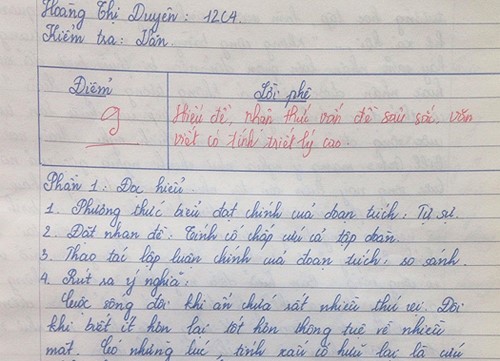 Hoàng Thị Duyên : 12C4
Kiểm tra : Văn.
Điểm
Lời phê
9
Hiểu đề, nhận thức vấn đề sâu sắc, văn
viết có tính triết lý cao.
Phần 1 : Đọc hiểu.
1. Phương thức biểu đạt chính của đoạn trích : Tự sự.
2. Đặt nhan đề : Tính cố chấp cứu cả tập đoàn.
3. Thao tác lập luận chính của đoạn trích : so sánh.
4. Rút ra ý nghĩa :
Cuộc sống đôi khi ẩn chứa rất nhiều thú vị. Đôi
khi biết ít hơn lại tốt hơn thông tuệ về nhiều
mặt. Có những lúc tính xấu có hữu lạc là cứu